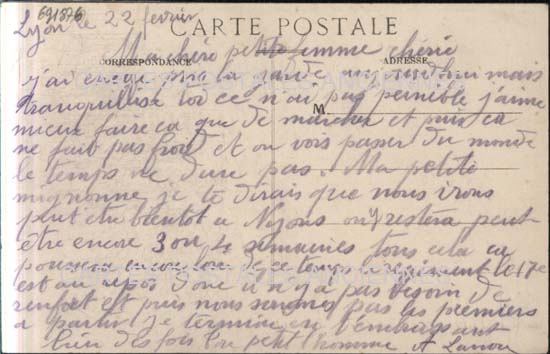 691876
Lyon le 22 février
CARTE POSTALE
Ma chère petite femme chérie
CORRESPONDANCE
ADRESSE
j'ai encore pris la garde aujourdhui mais
tranquilise toi ce n'ai pas penible j'aime
M
mieux faire ca que de marcher et puis ca
ne fait pas froid et on vois passer du monde
le temps ne dure pas. Ma petite
mignonne je te dirais que nous irons
peut etre bientot a on y restera peut
être encore 3 ou 4 semaines tous cela ca
encore de ce temps regiment le 17e
est au repos donc il n'y a pas besoin de
renfort et puis nous serons pas les premiers
a partir je termine en t'embrassant
bien des fois ton petit homme